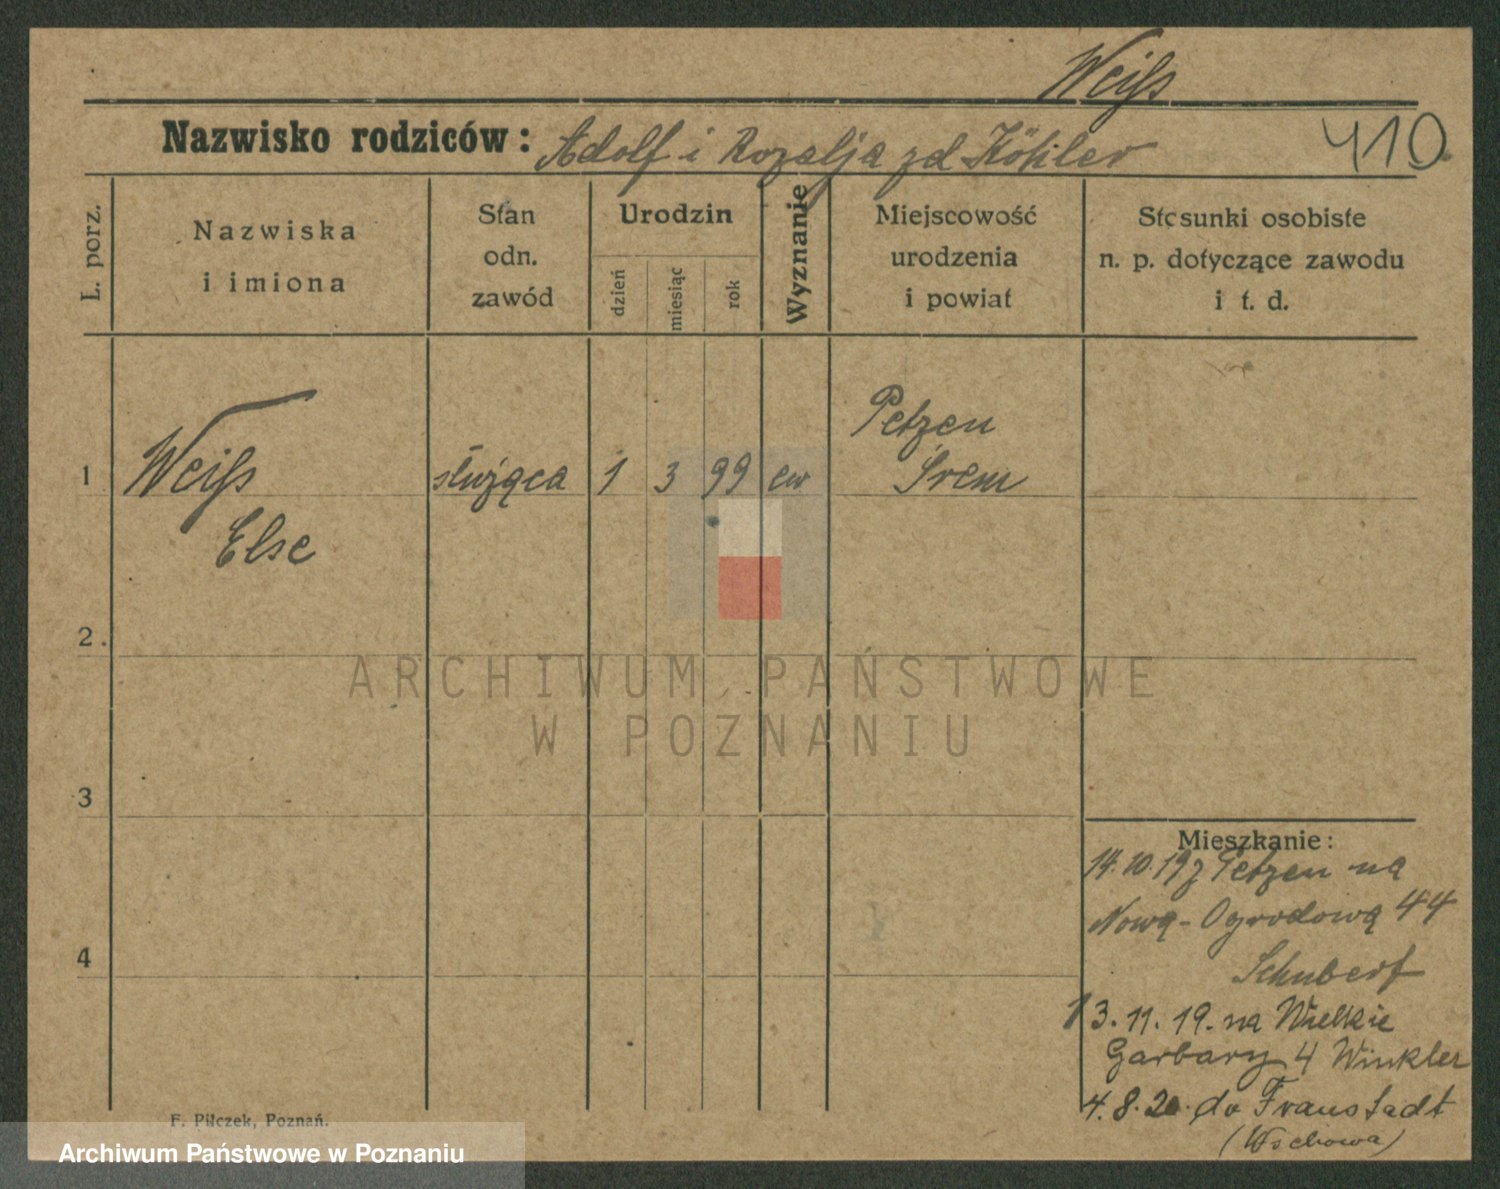 Weiß
Nazwisko rodziców: Adolf i Rozalja zd Köhler
410
L. porz.
Nazwiska
i imiona
Stan
odn.
zawód
Urodzin
dzień
miesiąc
rok
Wyznanie
Miejscowość
urodzenia
i powiat
Stosunki osobiste
n. p. dotyczące zawodu
i t. d.
1 Weiß służąca 1 3 99 ew Petzen
Śrem
Else
2.
3
4
Mieszkanie:
14.10.19 z Petzen na
Nową-Ogrodową 44
Schubert
13.11.19. na Wielkie
Garbary 4 Winkler
4.8.20. do Fraustadt
(Wschowa)
F. Pilczek, Poznań.
ARCHIWUM PAŃSTWOWE
W POZNANIU
Archiwum Państwowe w Poznaniu